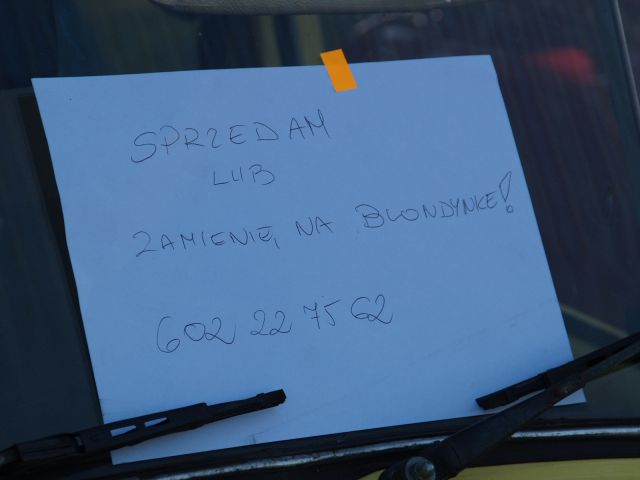 SPRZEDAM
LUB
ZAMIENIĘ NA BLONDYNKE!
602 22 75 62